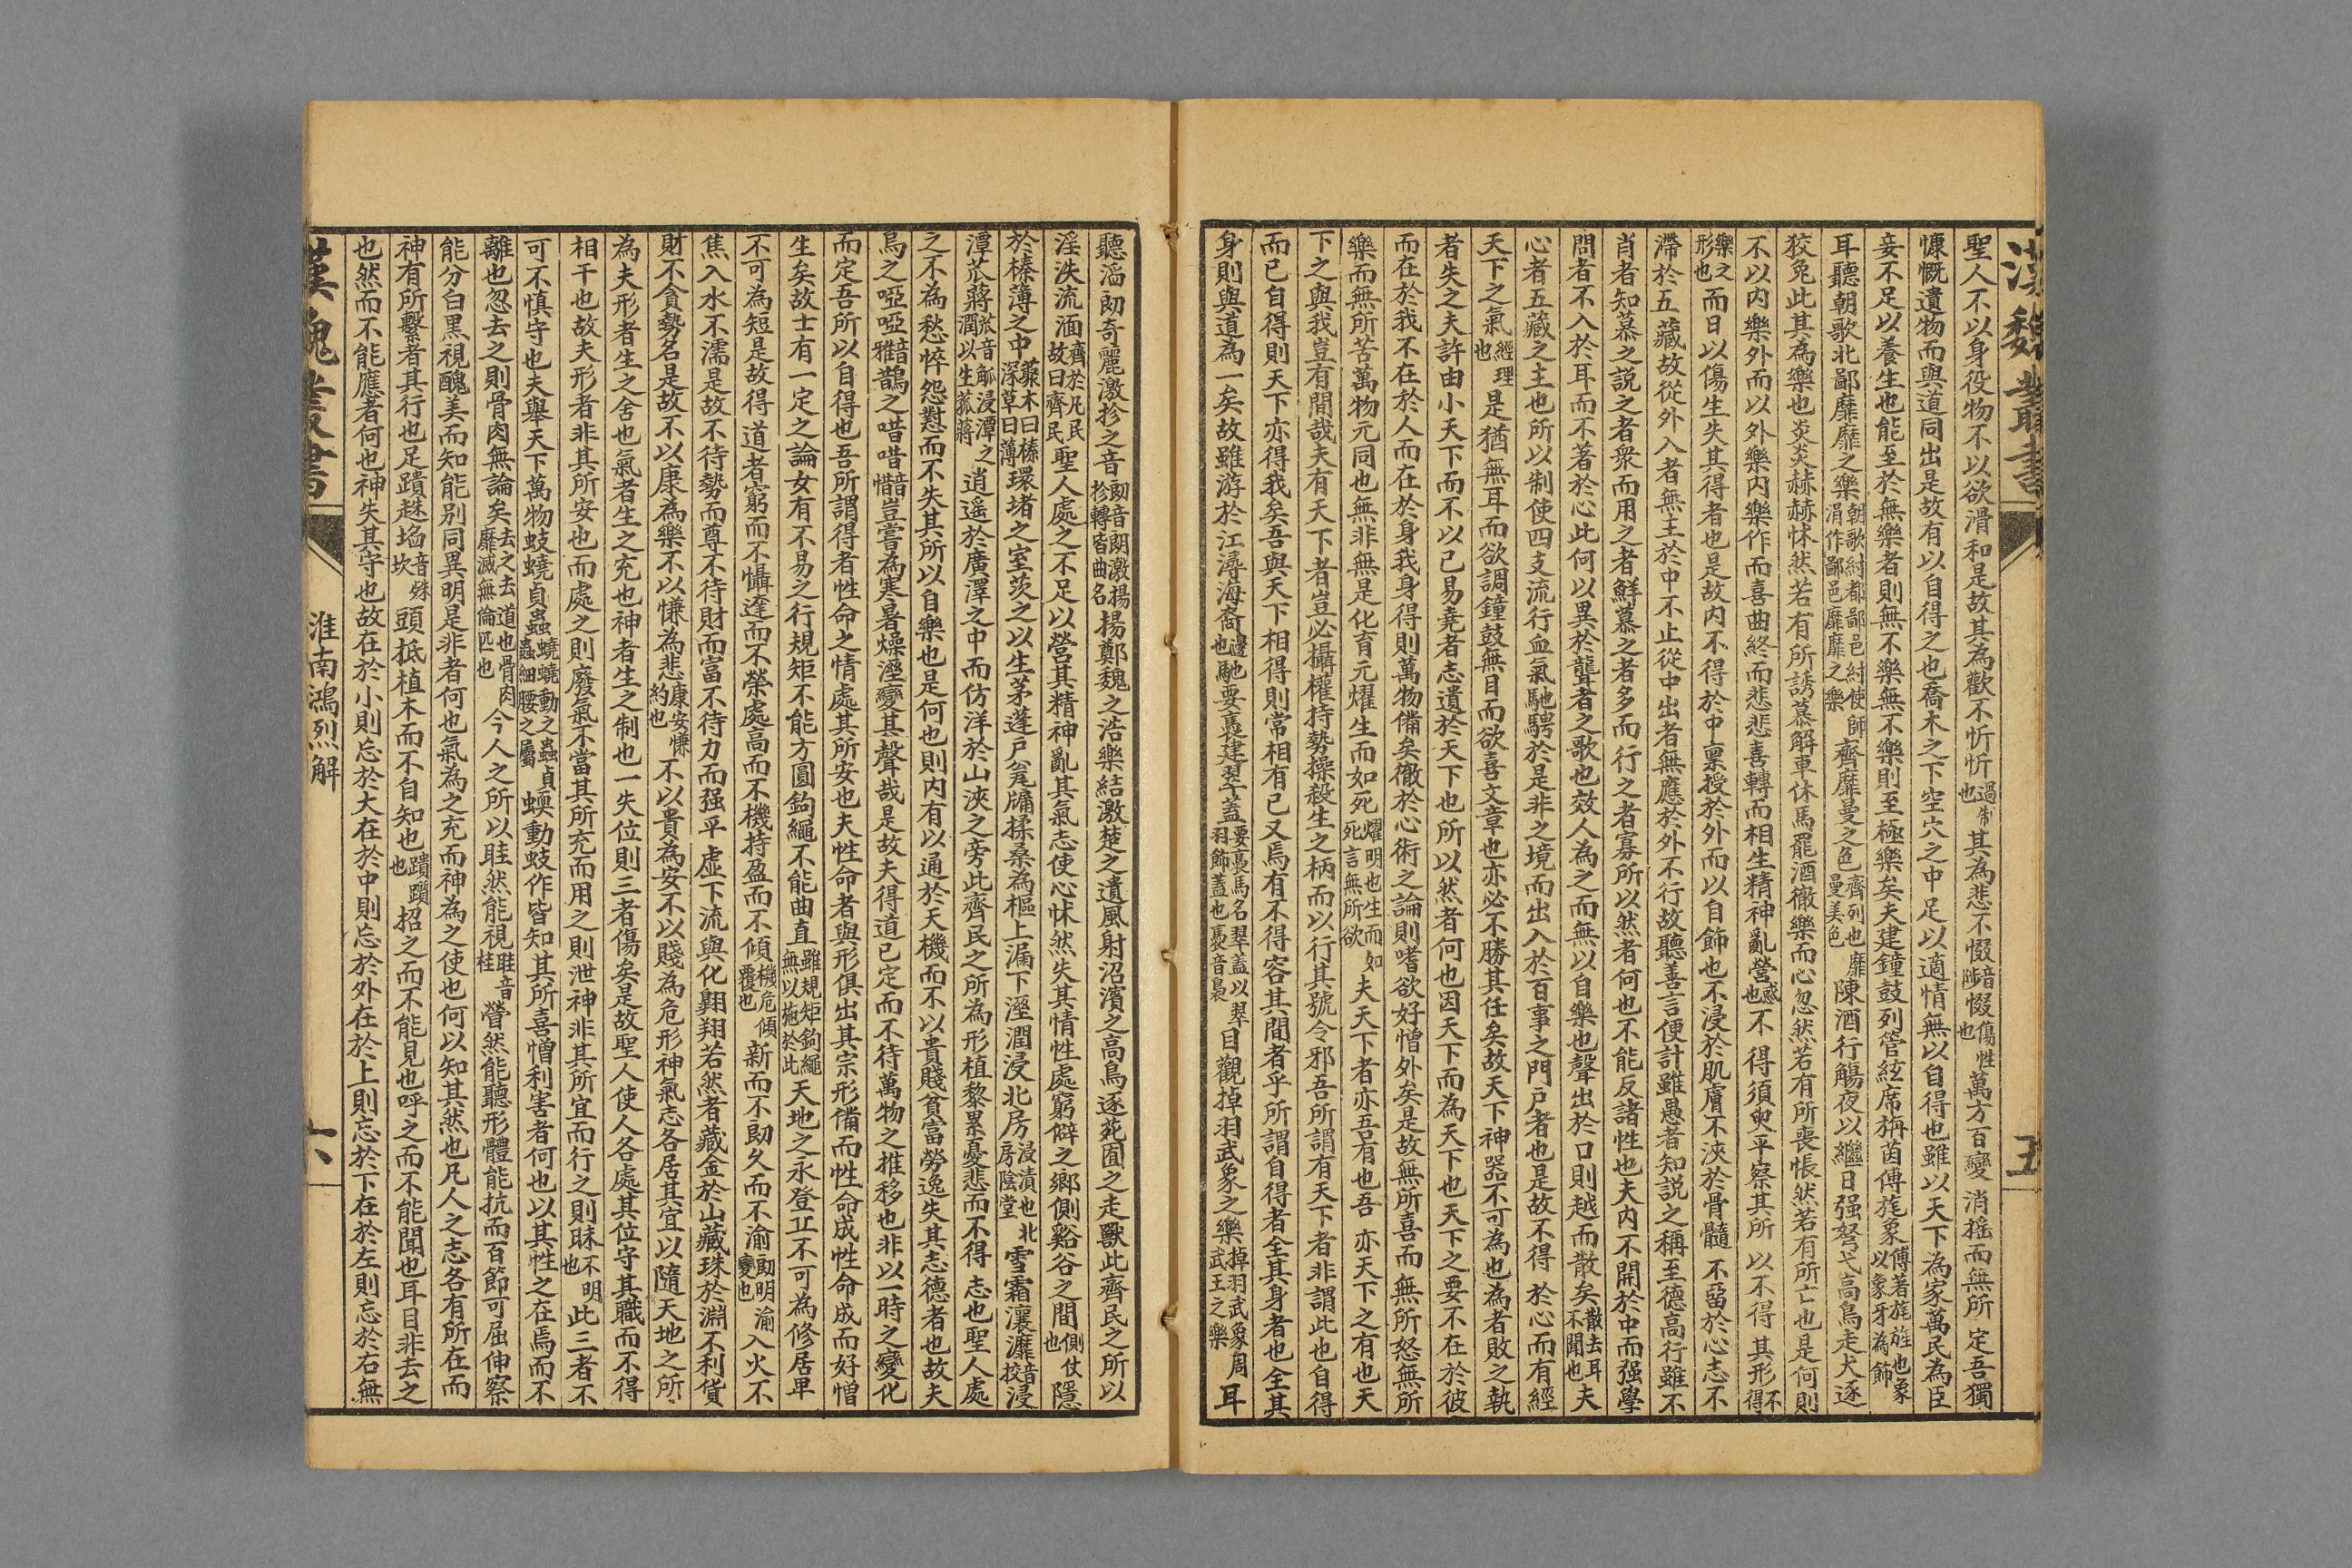 漢魏叢書
五
聖人不以身役物不以欲滑和是故其為歡不忻忻過制也其為悲不惙惙音腏惙傷性也萬方百變消搖而無所定吾獨
慷慨遺物而與道同出是故有以自得之也喬木之下空穴之中足以適情無以自得也雖以天下為家萬民為臣
妾不足以養生也能至於無樂者則無不樂無不樂則至極樂矣夫建鐘鼓列管絃席旃茵傅旄象傅著旄旌也象以象牙為飾
耳聽朝歌北鄙靡靡之樂朝歌紂都鄙邑紂使師涓作鄙邑靡靡之樂齊靡曼之色齊列也靡曼美色陳酒行觴夜以繼日强弩弋高鳥走犬逐
狡兔此其為樂也炎炎赫赫怵然若有所誘慕解車休馬罷酒徹樂而心忽然若有所喪悵然若有所亡也是何則
不以内樂外而以外樂内樂作而喜曲終而悲悲喜轉而相生精神亂營惑也不得須臾平察其所以不得其形不得
樂之形也而日以傷生失其得者也是故内不得於中稟授於外而以自飾也不浸於肌膚不浹於骨髓不留於心志不
滯於五藏故從外入者無主於中不止從中出者無應於外不行故聽善言便計雖愚者知説之稱至德高行雖不
肖者知慕之説之者衆而用之者鮮慕之者多而行之者寡所以然者何也不能反諸性也夫内不開於中而强學
問者不入於耳而不著於心此何以異於聾者之歌也效人為之而無以自樂也聲出於口則越而散矣散去耳不聞也夫
心者五藏之主也所以制使四支流行血氣馳騁於是非之境而出入於百事之門戶者也是故不得於心而有經
天下之氣經理也是猶無耳而欲調鐘鼓無目而欲喜文章也亦必不勝其任矣故天下神器不可為也為者敗之執
者失之夫許由小天下而不以已易堯者志遺於天下也所以然者何也因天下而為天下也天下之要不在於彼
而在於我不在於人而在於身我身得則萬物備矣徹於心術之論則嗜欲好憎外矣是故無所喜而無所怒無所
樂而無所苦萬物元同也無非無是化育元燿生而如死燿明也生而如死言無所欲夫天下者亦吾有也吾亦天下之有也天
下之與我豈有間哉夫有天下者豈必攝權持勢操殺生之柄而以行其號令邪吾所謂有天下者非謂此也自得
而已自得則天下亦得我矣吾與天下相得則常相有已又焉有不得容其間者乎所謂自得者全其身者也全其
身則與道為一矣故雖游於江潯海裔邊也馳要褭建翠蓋要褭馬名翠蓋以翠羽飾蓋也褭音裊目觀掉羽武象之樂掉羽武象周武王之樂耳
聽滔朗奇麗激抮之音朗音朗激揚抮轉皆曲名揚鄭魏之浩樂結激楚之遺風射沼濱之高鳥逐苑囿之走獸此齊民之所以
淫泆流湎齊於凡民故曰齊民聖人處之不足以營其精神亂其氣志使心怵然失其情性處窮僻之鄉側谿谷之間側伏也隱
於榛薄之中藂木曰榛深草曰薄環堵之室茨之以生茅蓬戶瓮牖揉桑為樞上漏下溼潤浸北房浸漬也北房陰堂雪霜瀼灖音挍浸
潭苽蔣苽音觚浸潭之潤以生菰蔣逍遥於廣澤之中而仿洋於山浹之旁此齊民之所為形植黎累憂悲而不得志也聖人處
之不為愁悴怨懟而不失其所以自樂也是何也則内有以通於天機而不以貴賤貧富勞逸失其志德者也故夫
烏之啞啞音雅鵲之唶唶音惜豈嘗為寒暑燥溼變其聲哉是故夫得道已定而不待萬物之推移也非以一時之變化
而定吾所以自得也吾所謂得者性命之情處其所安也夫性命者與形俱出其宗形備而性命成性命成而好憎
生矣故士有一定之論女有不易之行規矩不能方圓鉤繩不能曲直雖規矩鉤繩無以施於此天地之永登丘不可為修居卑
不可為短是故得道者窮而不懾達而不榮處高而不機持盈而不傾機危傾覆也新而不朗久而不渝朗明渝變也入火不
焦入水不濡是故不待勢而尊不待財而富不待力而强平虛下流與化翺翔若然者藏金於山藏珠於淵不利貨
財不貪勢名是故不以康為樂不以慊為悲康安慊約也不以貴為安不以賤為危形神氣志各居其宜以隨天地之所
為夫形者生之舍也氣者生之充也神者生之制也一失位則三者傷矣是故聖人使人各處其位守其職而不得
相干也故夫形者非其所安也而處之則廢氣不當其所充而用之則泄神非其所宜而行之則昧不明也此三者不
可不慎守也夫舉天下萬物蚑蟯貞蟲蟯蟯動之蟲貞蟲細腰之屬蝡動蚑作皆知其所喜憎利害者何也以其性之在焉而不
離也忽去之則骨肉無論矣去之去道也骨肉靡滅無倫匹也今人之所以眭然能視眭音桂瞢然能聽形體能抗而百節可屈伸察
能分白黑視醜美而知能別同異明是非者何也氣為之充而神為之使也何以知其然也凡人之志各有所在而
神有所繫者其行也足蹪趎埳音坎頭抵植木而不自知也蹪躓也招之而不能見也呼之而不能聞也耳目非去之
也然而不能應者何也神失其守也故在於小則忘於大在於中則忘於外在於上則忘於下在於左則忘於右無
漢魏叢書
淮南鴻烈解
六